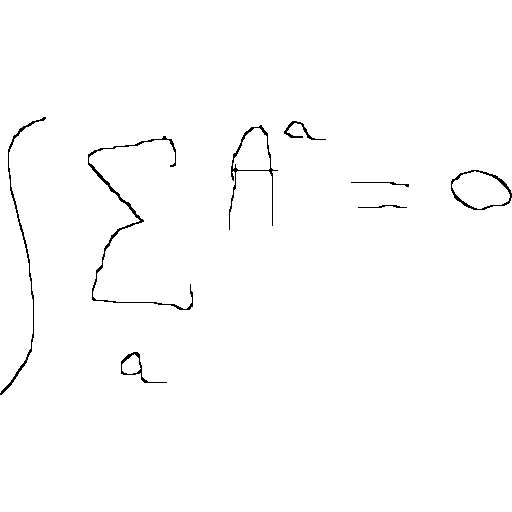 \int \sum_{a} A^{a} = 0